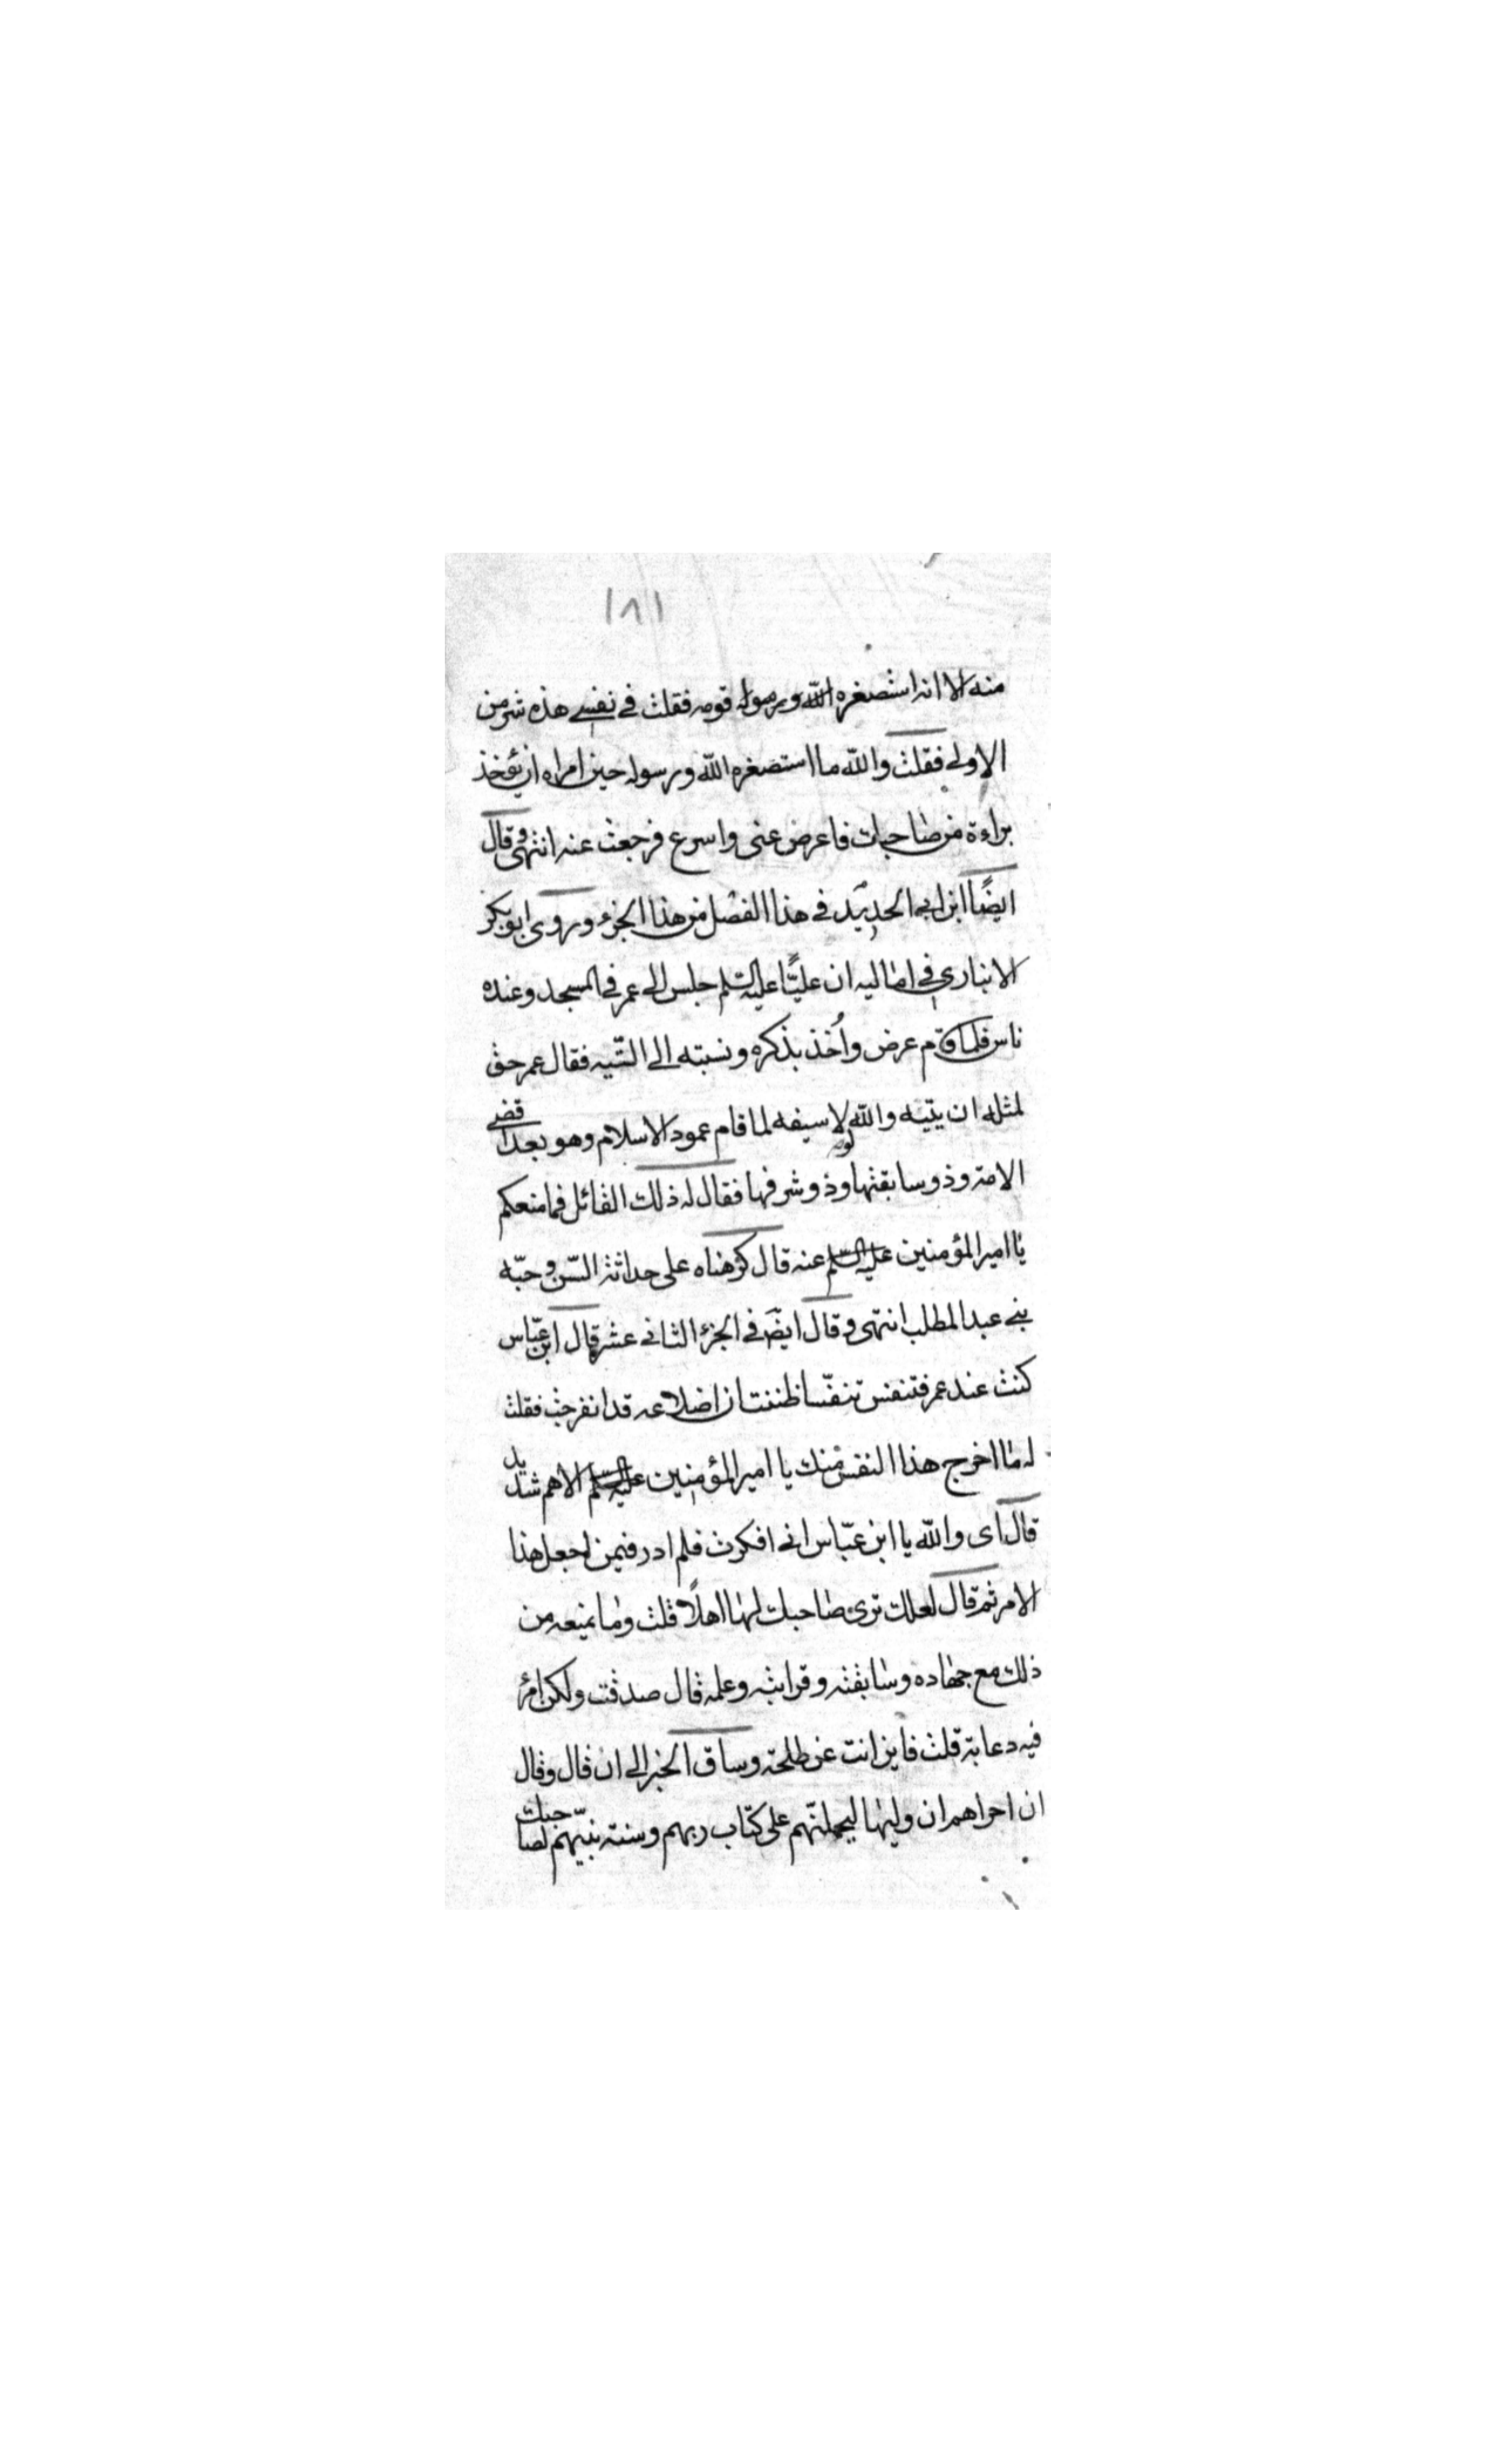 ١٨١
منه الا انه استصغره الله ورسوله قومه فقلت في نفسي هذه شر من
الاولى فقلت والله ما استصغره الله ورسوله حين امراه ان ياخذ
براءة من صاحبك فاعرض عنى واسرع فرجعت عنه انتهى وقال
ايضًا ابن ابي الحديد في هذا الفصل من هذا الجزء وروى ابو بكر
الانباري في اماليه ان عليًّا عليه السلم جلس الى عمر في المسجد وعنده
ناس فلما قام عرض واُخذ بذكره ونسبته الى التّيه فقال عمر حق
لمثله ان يتيه والله لولا سيفه لما قام عمود الاسلام وهو بعد اقضى
الامة وذو سابقتها وذو شرفها فقال له ذلك القائل فما منعكم
يا امير المؤمنين عليه السلم عنه قال كرهناه على حداثة السّن وحبّه
بني عبد المطلب انتهى وقال ايضً في الجزء الثانى عشر قال ابن عبّاس
كنت عند عمر فتنفس تنفّسا ظننت ان اضلاعه قد انفرجت فقلت
له ما اخرج هذا النفس منك يا امير المؤمنين عليه السلم الا هم شديد
قال اى والله يا ابن عبّاس انى افكرت فلم ادر فيمن اجعل هذا
الامر ثم قال لعلك ترى صاحبك لها اهلًا قلت وما يمنعه من
ذلك مع جهاده وسابقته وقرابته وعلمه قال صدقت ولكن امرؤ
فيه دعابة قلت فاين انت عن طلحة وساق الخبر الى ان قال وقال
ان احراهم ان وليها ليحملنّهم على كتاب ربهم وسنة نبيّهم لصاحبك